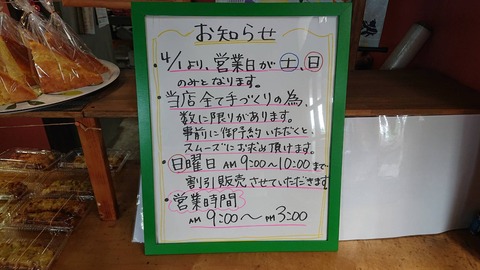 お知らせ
4/1より、営業日が土、日
のみとなります。
・当店全て手づくりの為、
数に限りがあります。
事前に御予約いただくと、
スムーズにお求め頂けます。
・日曜日AM9:00〜10:00まで
割引販売させていただきます。
・営業時間
AM9:00〜PM3:00